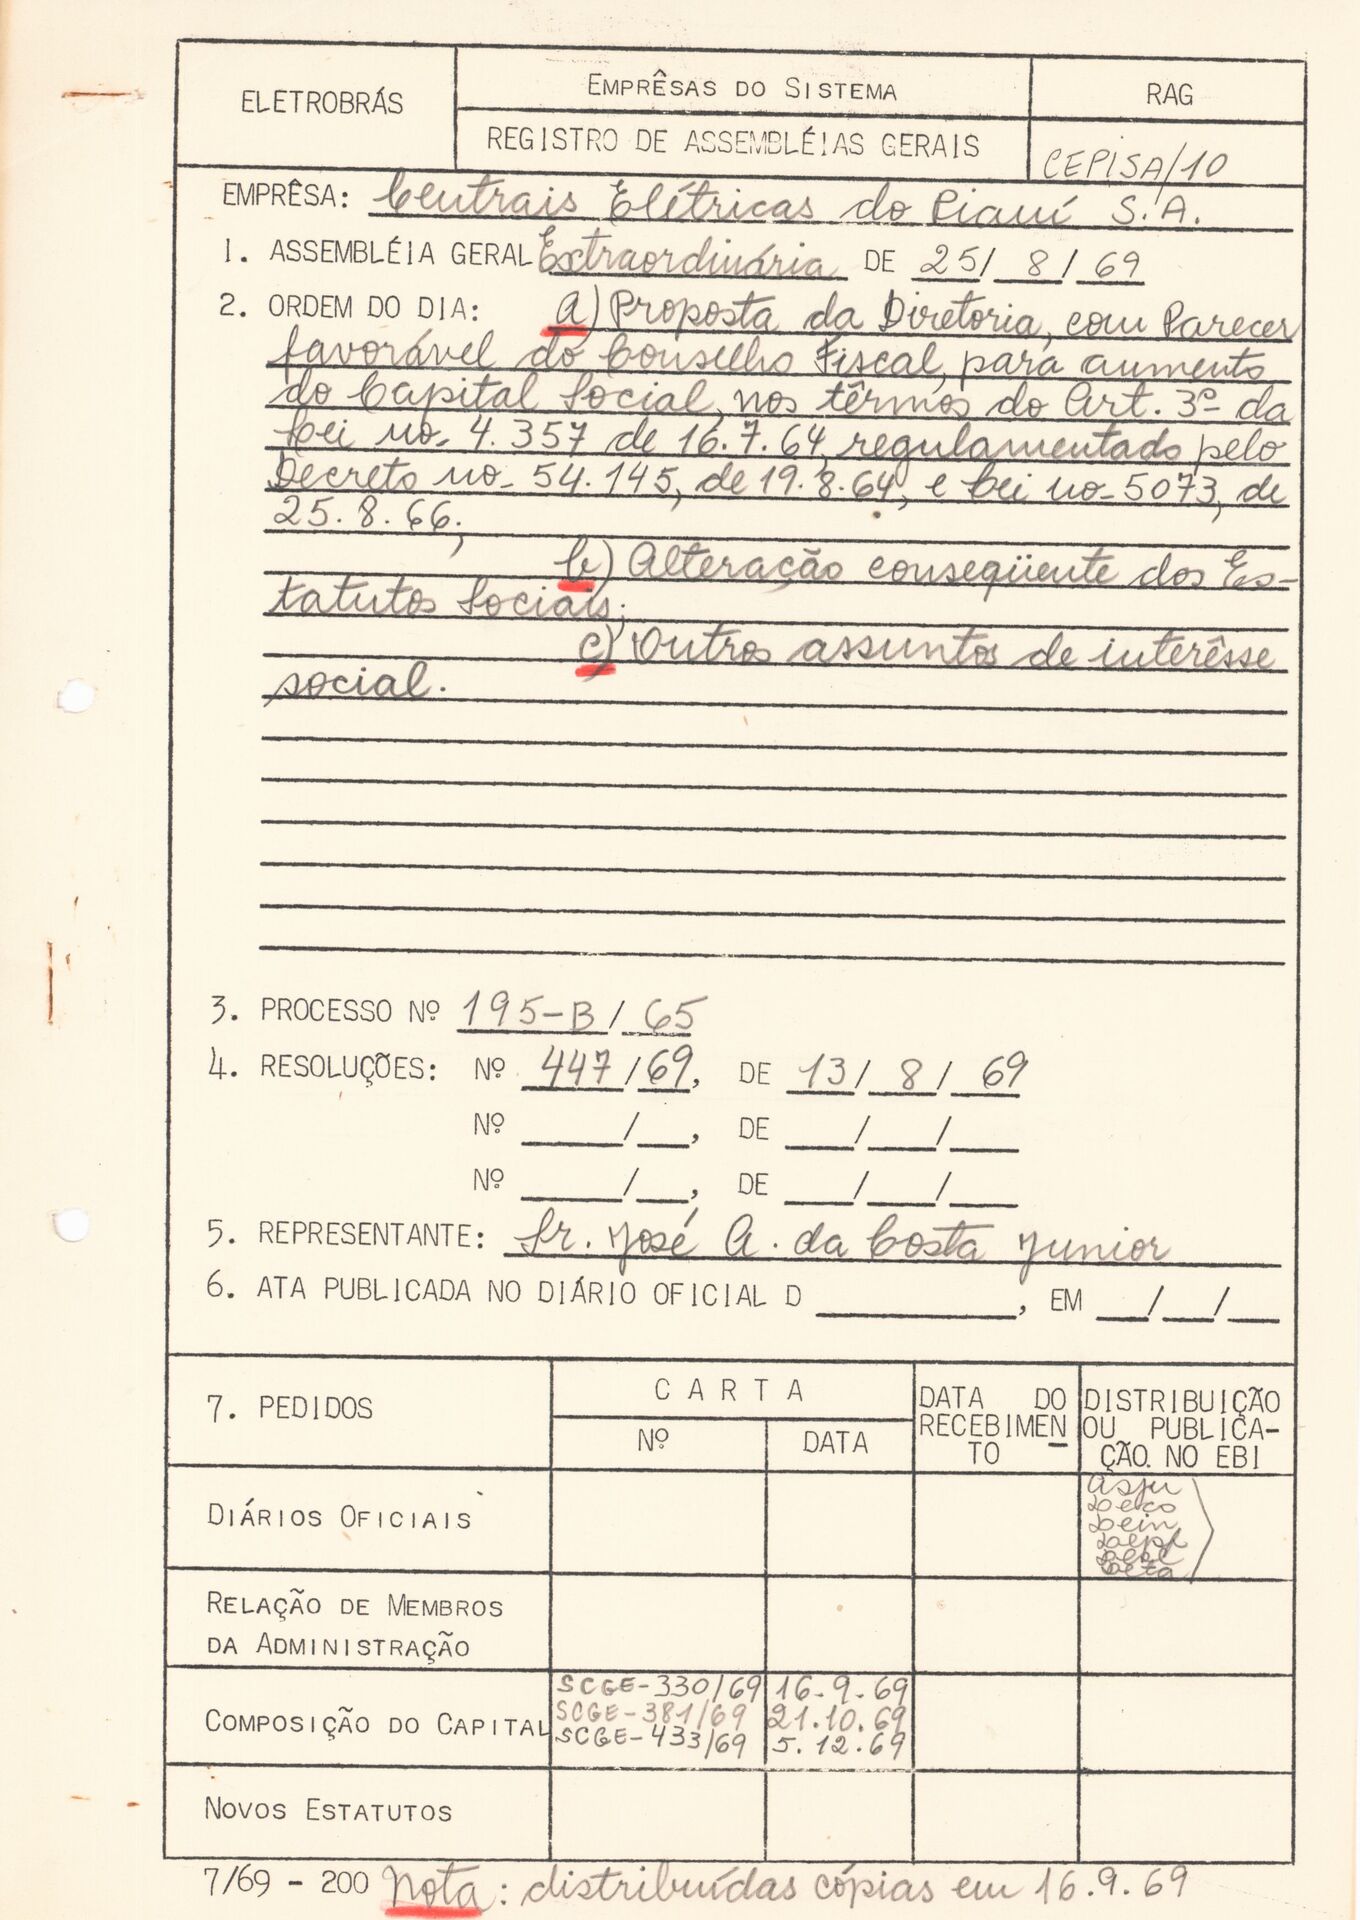 ELETROBRÁS
EMPRÊSAS DO SISTEMA
RAG
REGISTRO DE ASSEMBLÉIAS GERAIS
CEPISA/10
EMPRÊSA: Centrais Elétricas do Piauí S.A.
1. ASSEMBLÉIA GERAL Extraordinária DE 25/8/69
2. ORDEM DO DIA: a) Proposta da Diretoria, com Parecer
favorável do Conselho Fiscal, para aumento
do Capital Social, nos têrmos do Art. 3º da
Lei no. 4.357 de 16.7.64, regulamentado pelo
Decreto no. 54.145, de 19.8.64, e Lei no. 5073, de
25.8.66;
b) Alteração conseqüente dos Es-
tatutos Sociais;
c) Outros assuntos de interêsse
social.
3. PROCESSO Nº 195-B/65
4. RESOLUÇÕES: Nº 447/69, DE 13/8/69
Nº ____/__, DE __/__/__
Nº ____/__, DE __/__/__
5. REPRESENTANTE: Sr. José A. da Costa Junior
6. ATA PUBLICADA NO DIÁRIO OFICIAL D ________, EM __/__/__
7. PEDIDOS
CARTA
Nº
DATA
DATA DO
RECEBIMEN
TO -
DISTRIBUIÇÃO
OU PUBLICA-
ÇÃO. NO EBI
DIÁRIOS OFICIAIS
Asju
Deco
Dein
RELAÇÃO DE MEMBROS
DA ADMINISTRAÇÃO
COMPOSIÇÃO DO CAPITAL
SCGE-330/69 16.9.69
SCGE-381/69 21.10.69
SCGE-433/69 5.12.69
NOVOS ESTATUTOS
7/69 - 200 Nota: distribuídas cópias em 16.9.69